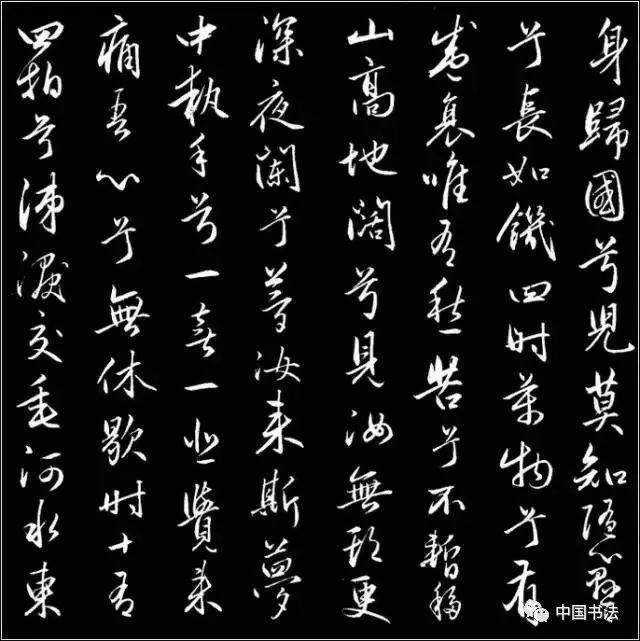 身歸國兮兒莫知隨心懸
兮長如饑四时萬物兮有
盛衰唯有愁苦兮不暫移
山高地闊兮見汝無期更
深夜闌兮夢汝来斯夢
中執手兮一喜一悲覺来
痛吾心兮無休歇时十有
四拍兮涕淚交垂河水東
中国书法